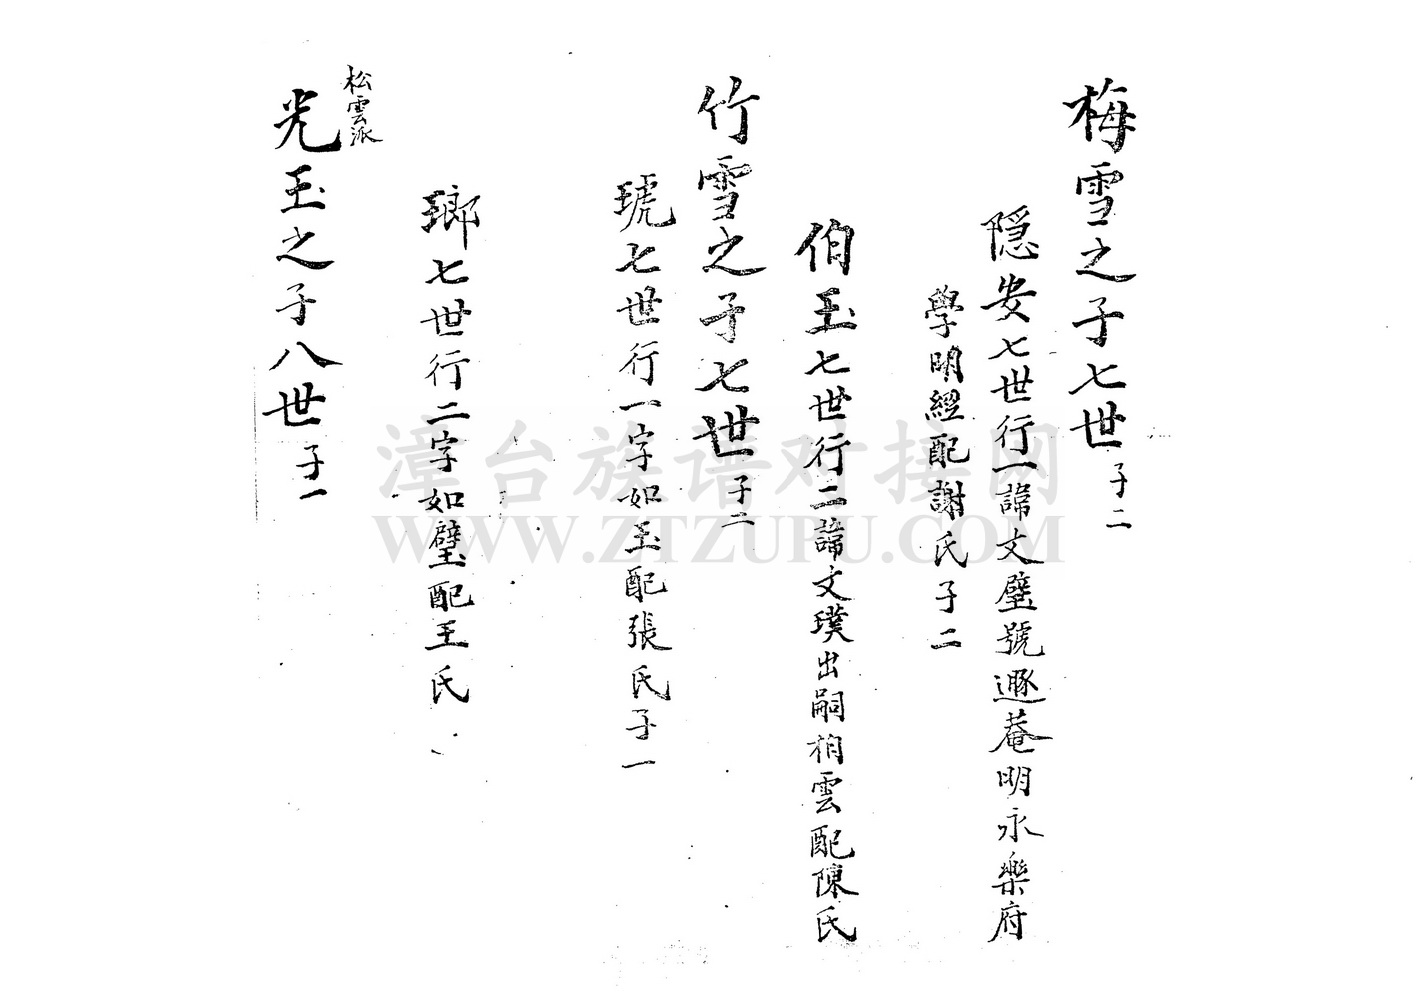 梅雪之子七世子二
隱安七世行一諱文璧號遯菴明永樂府
學明經配謝氏子二
伯玉七世行二諱文璞出嗣栢雲配陳氏
竹雪之子七世子二
琥七世行一字如玉配張氏子一
瑯七世行二字如璧配王氏
松雲派
光玉之子八世子一
漳台族谱对接网
WWW.ZTZUPU.COM